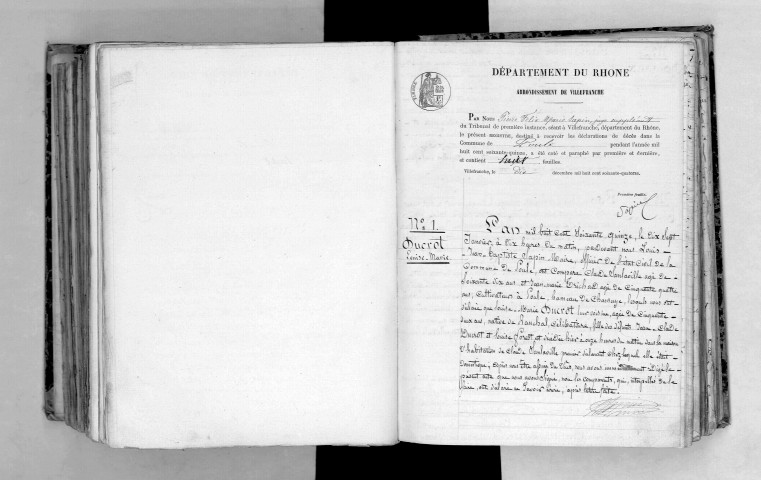 DÉPARTEMENT DU RHONE
ARRONDISSEMENT DE VILLEFRANCHE
PAR NOUS Pierre Félix Marie Sapin, juge suppléant
du Tribunal de première instance, séant à Villefranche, département du Rhône,
le présent REGISTRE, destiné à recevoir les déclarations de décès dans la
Commune de Poule pendant l'année mil
huit cent soixante-quinze, a été coté et paraphé par première et dernière,
et contient huit feuilles.
Villefranche, le dix décembre mil huit cent soixante-quatorze.
Première feuille.
Sapin
No 1.
Ducrot
Louise-Marie
L'an mil huit cent soixante quinze, le dix sept
Janvier à dix heures du matin, pardevant nous Louis-
Jean-Baptiste Sapin Maire, officier de l'état civil de la
Commune de Poule, est comparu Claude Vanlaville agé de
soixante dix ans et Jean-marie Tréchal agé de cinquante quatre
ans, cultivateurs à Poule, hameau de lesquels nous ont
déclaré que Louise-Marie Ducrot leur voisine, agée de cinquante-
deux ans, native de Ranchal, célibataire, fille des défunts Jean-Claude
Ducrot et Louise est décédée hier à onze heures du matin dans la maison
d'habitation de Claude Vanlaville premier déclarant chez lequel elle était
domestique, après nous être assuré du décès, nous avons immédiatement rédigé le
présent acte que nous avons signé, non les comparants, qui, interpellés de le
faire, ont déclaré ne savoir écrire, après lecture faite.